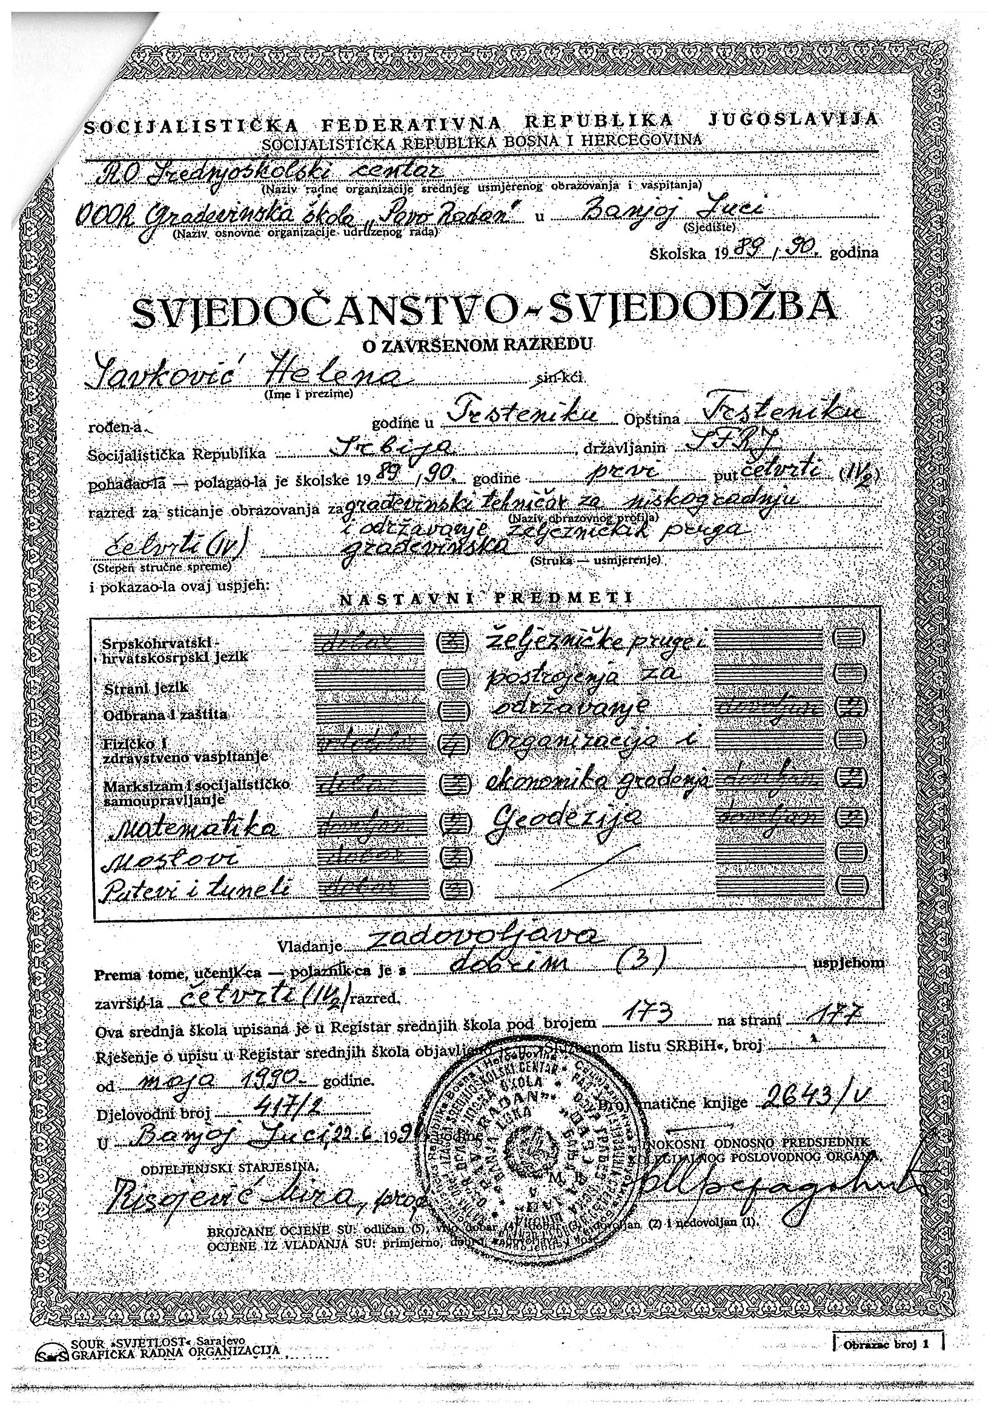 SOCIJALISTIČKA FEDERATIVNA REPUBLIKA JUGOSLAVIJA
SOCIJALISTIČKA REPUBLIKA BOSNA I HERCEGOVINA
RO Srednjoškolski centar
(Naziv radne organizacije srednjeg usmjerenog obrazovanja i vaspitanja)
OOUR Građevinska škola „Pavo Radan“ u Banjoj Luci
(Naziv osnovne organizacije udruženog rada) (Sjedište)
Školska 1989/90. godina
SVJEDOČANSTVO-SVJEDODŽBA
O ZAVRŠENOM RAZREDU
Savković Helena sin-kći
(Ime i prezime)
rođen-a godine u Trsteniku Opština Trsteniku
Socijalistička Republika Srbija, državljanin SFRJ
pohađao-la — polagao-la je školske 1989/90. godine prvi put četvrti (IV/2)
razred za sticanje obrazovanja za građevinski tehničar za niskogradnju
(Naziv obrazovnog profila)
i održavanje željezničkih pruga
četvrti (IV) građevinska
(Stepen stručne spreme) (Struka — usmjerenje)
i pokazao-la ovaj uspjeh:
NASTAVNI PREDMETI
Srpskohrvatski - hrvatskosrpski jezik dobar (3) željezničke pruge i
Strani jezik postrojenja za
Odbrana i zaštita održavanje dovoljan (2)
Fizičko i zdravstveno vaspitanje vrlo dobar (4) Organizacija i
Marksizam i socijalističko samoupravljanje dobar (3) ekonomika građenja dovoljan (2)
Matematika dovoljan (2) Geodezija dovoljan (2)
Mostovi dobar (3)
Putevi i tuneli dobar (3)
Vladanje zadovoljava
Prema tome, učenik-ca — polaznik-ca je s dobrim (3) uspjehom
završio-la četvrti (IV/2) razred.
Ova srednja škola upisana je u Registar srednjih škola pod brojem 173 na strani 177
Rješenje o upisu u Registar srednjih škola objavljeno je u »Službenom listu SRBiH«, broj
od maja 1990. godine.
Djelovodni broj 417/2 Broj matične knjige 2643/V
U Banjoj Luci, 22.6.1990 godine
ODJELJENJSKI STARJEŠINA, INOKOSNI ODNOSNO PREDSJEDNIK
KOLEGIJALNOG POSLOVODNOG ORGANA,
Risojević Mira, prof
BROJČANE OCJENE SU: odličan (5), vrlo dobar (4), dobar (3), dovoljan (2) i nedovoljan (1).
OCJENE IZ VLADANJA SU: primjerno, dobro, zadovoljava i
SOUR »SVJETLOST« Sarajevo
GRAFIČKA RADNA ORGANIZACIJA
Obrazac broj 1